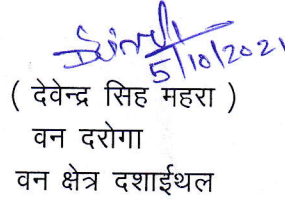 5/10/2021
( देवेन्द्र सिह महरा )
वन दरोगा
वन क्षेत्र दशाईथल